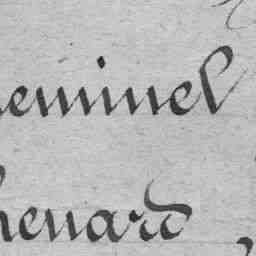 eminel
henard